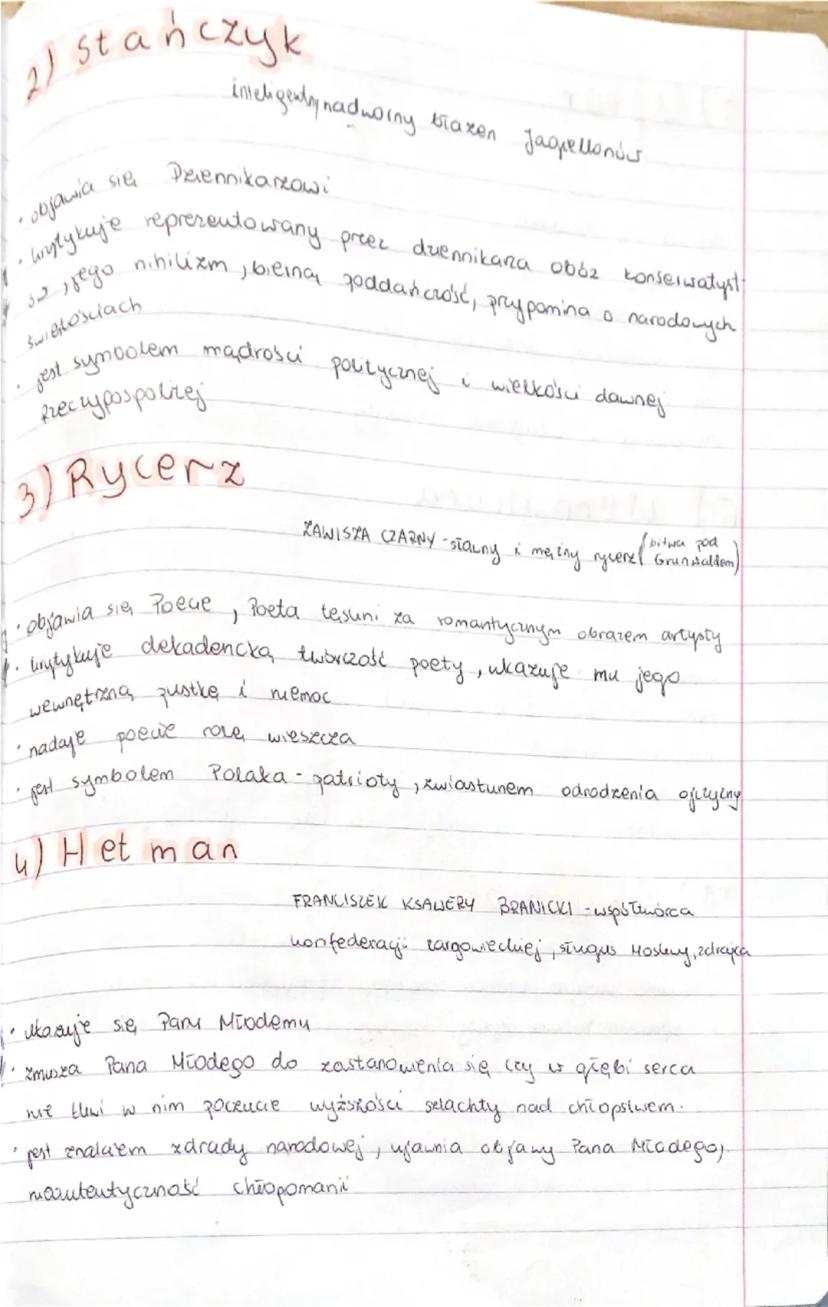 2) Stańczyk
inteligentny nadworny błazen Jagiellonów
• objawia się Dziennikarzowi
• krytykuje reprezentowany przez dziennikarza obóz konserwatyst-
ów, jego nihilizm, bierną poddańczość, przypomina o narodowych
świętościach
• jest symbolem mądrości politycznej i wielkości dawnej
Rzeczypospolitej
3) Rycerz
ZAWISZA CZARNY - sławny i mężny rycerz (bitwa pod
Grunwaldem)
• objawia się Poecie, Poeta tęskni za romantycznym obrazem artysty
• krytykuje dekadencką twórczość poety, ukazuje mu jego
wewnętrzną pustkę i niemoc
• nadaje poecie rolę wieszcza
• jest symbolem Polaka - patrioty, zwiastunem odrodzenia ojczyzny
4) Hetman
FRANCISZEK KSAWERY BRANICKI - współtwórca
konfederacji targowieckiej, sługus Moskwy, zdrajca
• ukazuje się Panu Młodemu
• zmusza Pana Młodego do zastanowienia się czy w głębi serca
nie tkwi w nim poczucie wyższości szlachty nad chłopstwem.
• jest znakiem zdrady narodowej, ujawnia objawy Pana Młodego,
nieautentyczność chłopomanii